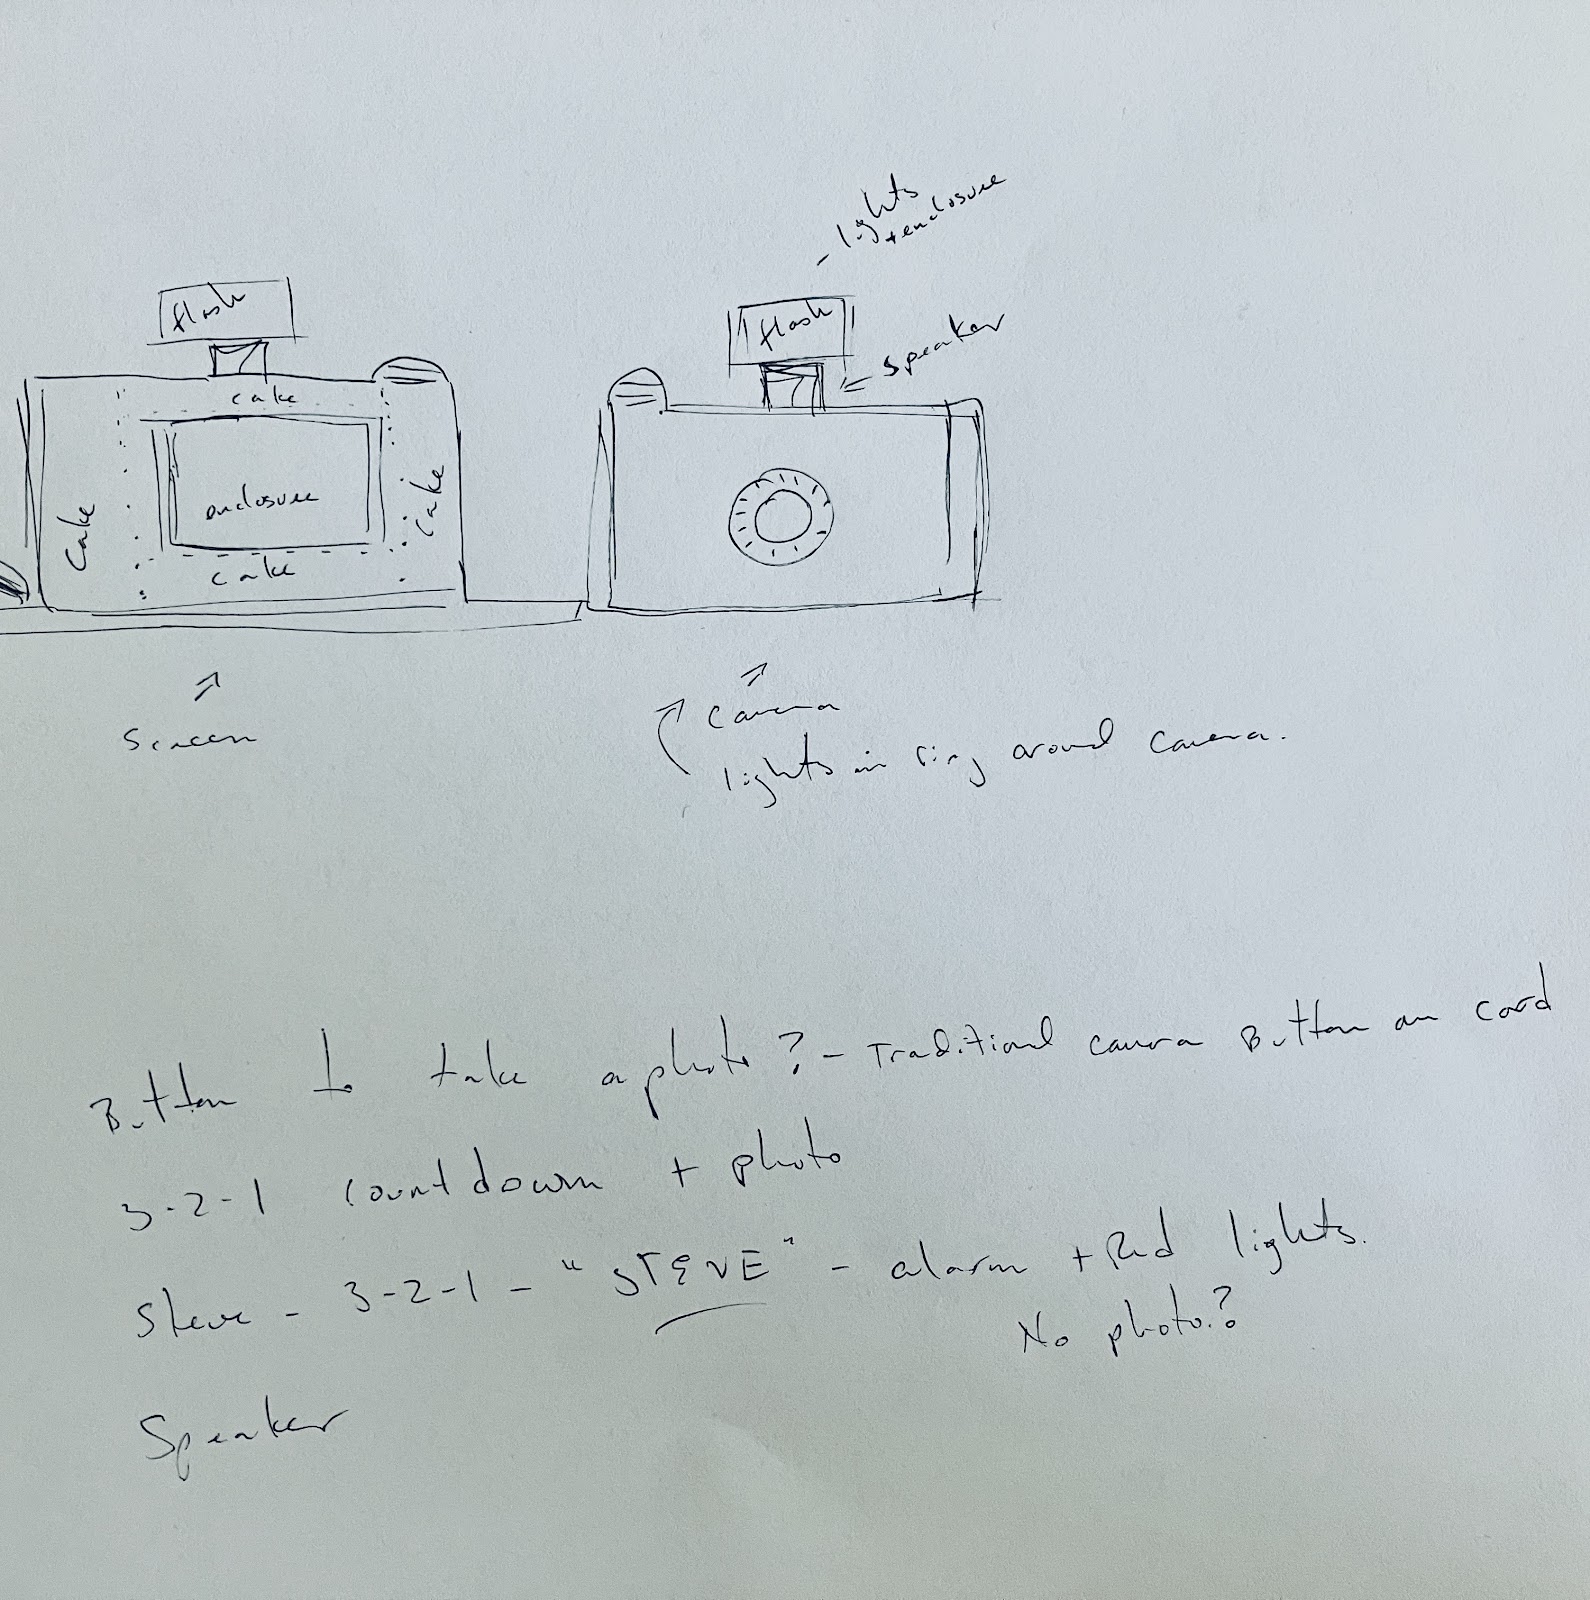 lights
+enclosure
flash
flash
speaker
cake
cake
enclosure
cake
cake
Screen
camera
lights in ring around camera.
Button to take a photo? - Traditional camera Button on cord
3-2-1 countdown + photo
Steve - 3-2-1 - "STEVE" - alarm + Red lights.
No photo?
Speaker